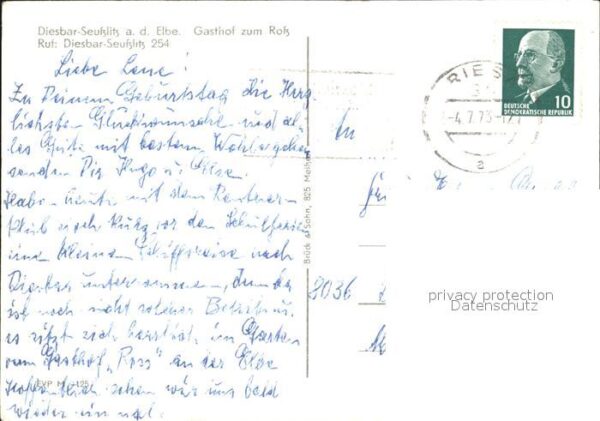 Diesbar-Seußlitz a. d. Elbe. Gasthof zum Roß
Ruf: Diesbar-Seußlitz 254
Liebe Lene!
Zu Deinem Geburtstag die Herz-
lichsten Glückwünsche und al-
les Gute mit bestem Wohlergehen
senden Dir Hugo u. Else.
Haben heute mit dem Rentner-
klub noch kurz vor den Schulferien
eine kleine Schiffsreise nach
Diesbar unternommen, denn da
ist noch nicht solcher Betrieb u.
es sitzt sich herrlich im Garten
vom Gasthof "Ross" an der Elbe
Hoffentlich sehen wir uns bald
wieder einmal.
EVP M 125
Brück & Sohn, 825 Meißen
RIES
-4.7.73-12
a
DEUTSCHE
DEMOKRATISCHE REPUBLIK
10
8036
privacy protection
Datenschutz